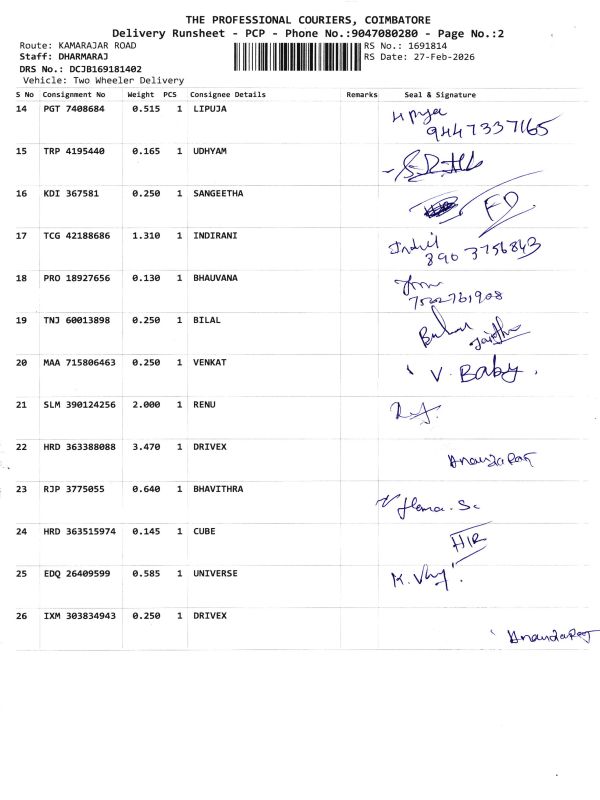 THE PROFESSIONAL COURIERS, COIMBATORE
Delivery Runsheet - PCP - Phone No.:9047080280 - Page No.:2
Route: KAMARAJAR ROAD RS No.: 1691814
Staff: DHARMARAJ RS Date: 27-Feb-2026
DRS No.: DCJB169181402
Vehicle: Two Wheeler Delivery
S No Consignment No Weight PCS Consignee Details Remarks Seal & Signature
14 PGT 7408684 0.515 1 LIPUJA
9447337165
15 TRP 4195440 0.165 1 UDHYAM
16 KDI 367581 0.250 1 SANGEETHA FD
17 TCG 42188686 1.310 1 INDIRANI
890 3756843
18 PRO 18927656 0.130 1 BHAUVANA
19 TNJ 60013898 0.250 1 BILAL
20 MAA 715806463 0.250 1 VENKAT V. Baby.
21 SLM 390124256 2.000 1 RENU
22 HRD 363388088 3.470 1 DRIVEX AnandaRaj
23 RJP 3775055 0.640 1 BHAVITHRA
24 HRD 363515974 0.145 1 CUBE
25 EDQ 26409599 0.585 1 UNIVERSE
26 IXM 303834943 0.250 1 DRIVEX AnandaRaj